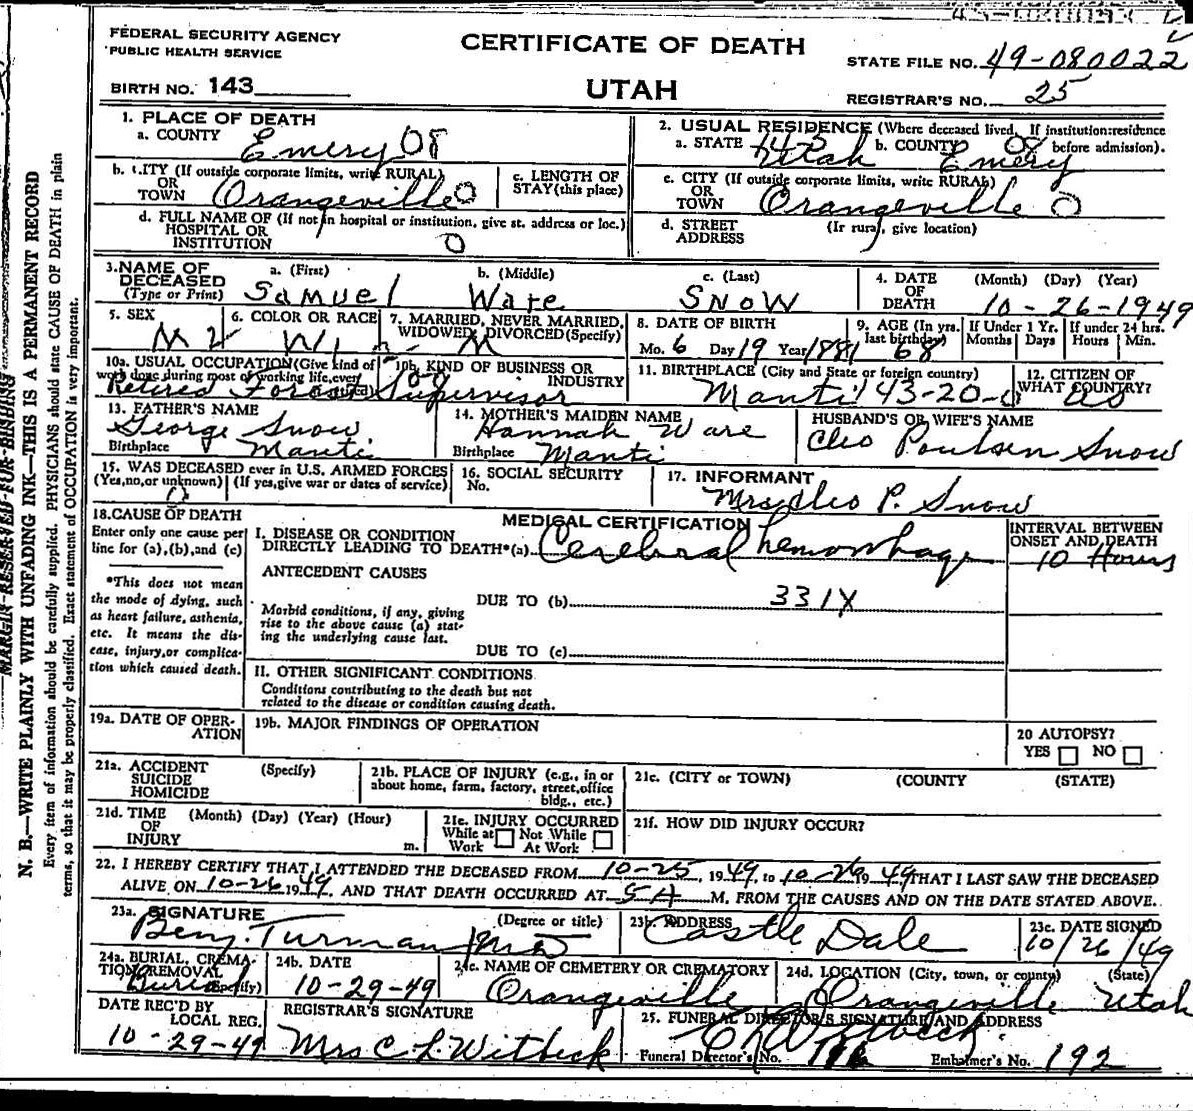 FEDERAL SECURITY AGENCY
PUBLIC HEALTH SERVICE
CERTIFICATE OF DEATH
UTAH
STATE FILE NO. 49-080022
BIRTH NO. 143
REGISTRAR'S NO. 25
1. PLACE OF DEATH
a. COUNTY Emery 08
2. USUAL RESIDENCE (Where deceased lived. If institution:residence before admission).
a. STATE Utah b. COUNTY 08 Emery
b. CITY (If outside corporate limits, write RURAL)
OR TOWN Orangeville 0
c. LENGTH OF STAY (this place)
c. CITY (If outside corporate limits, write RURAL)
OR TOWN Orangeville 0
d. FULL NAME OF (If not in hospital or institution, give st. address or loc.)
HOSPITAL OR INSTITUTION 0
d. STREET ADDRESS (If rural, give location)
3. NAME OF DECEASED (Type or Print)
a. (First) Samuel b. (Middle) Ware c. (Last) Snow
4. DATE OF DEATH (Month) (Day) (Year) 10-26-1949
5. SEX M
6. COLOR OR RACE
7. MARRIED, NEVER MARRIED, WIDOWED, DIVORCED (Specify) M
8. DATE OF BIRTH
Mo. 6 Day 19 Year 1881
9. AGE (In yrs. last birthday) 68
If Under 1 Yr. Months Days
If under 24 hrs. Hours Min.
10a. USUAL OCCUPATION (Give kind of work done during most of working life, even
Retired Forest Supervisor
10b. KIND OF BUSINESS OR INDUSTRY
11. BIRTHPLACE (City and State or foreign country)
Manti 43-20-0
12. CITIZEN OF WHAT COUNTRY? US
13. FATHER'S NAME
George Snow
Birthplace Manti
14. MOTHER'S MAIDEN NAME
Hannah Ware
Birthplace Manti
HUSBAND'S OR WIFE'S NAME
Cleo Poulsen Snow
15. WAS DECEASED ever in U.S. ARMED FORCES
(Yes, no, or unknown) (If yes, give war or dates of service)
16. SOCIAL SECURITY No.
17. INFORMANT
Mrs Cleo P. Snow
18. CAUSE OF DEATH
Enter only one cause per line for (a), (b), and (c)
MEDICAL CERTIFICATION
INTERVAL BETWEEN ONSET AND DEATH
I. DISEASE OR CONDITION
DIRECTLY LEADING TO DEATH*(a) Cerebral hemorrhage 10 Hours
*This does not mean the mode of dying, such as heart failure, asthenia, etc. It means the disease, injury, or complication which caused death.
ANTECEDENT CAUSES
DUE TO (b) 331X
Morbid conditions, if any, giving rise to the above cause (a) stating the underlying cause last.
DUE TO (c)
II. OTHER SIGNIFICANT CONDITIONS
Conditions contributing to the death but not related to the disease or condition causing death.
19a. DATE OF OPERATION
19b. MAJOR FINDINGS OF OPERATION
20 AUTOPSY?
YES NO
21a. ACCIDENT SUICIDE HOMICIDE (Specify)
21b. PLACE OF INJURY (e.g., in or about home, farm, factory, street, office bldg., etc.)
21c. (CITY or TOWN) (COUNTY) (STATE)
21d. TIME OF INJURY (Month) (Day) (Year) (Hour) m.
21e. INJURY OCCURRED
While at Work Not While At Work
21f. HOW DID INJURY OCCUR?
22. I HEREBY CERTIFY THAT I ATTENDED THE DECEASED FROM 10-25, 1949, to 10-26 1949 THAT I LAST SAW THE DECEASED
ALIVE ON 10-26 1949, AND THAT DEATH OCCURRED AT 5 A M. FROM THE CAUSES AND ON THE DATE STATED ABOVE.
23a. SIGNATURE (Degree or title)
Benj. Turman MD
23b. ADDRESS
Castle Dale
23c. DATE SIGNED
10/26/49
24a. BURIAL, CREMATION, REMOVAL (Specify)
Burial
24b. DATE
10-29-49
24c. NAME OF CEMETERY OR CREMATORY
Orangeville
24d. LOCATION (City, town, or county) (State)
Orangeville Utah
DATE REC'D BY LOCAL REG.
10-29-49
REGISTRAR'S SIGNATURE
Mrs C L Witbeck
25. FUNERAL DIRECTOR'S SIGNATURE AND ADDRESS
Funeral Director's No. Embalmer's No. 192
MARGIN RESERVED FOR BINDING
N. B.—WRITE PLAINLY WITH UNFADING INK—THIS IS A PERMANENT RECORD
Every item of information should be carefully supplied. PHYSICIANS should state CAUSE OF DEATH in plain
terms, so that it may be properly classified. Exact statement of OCCUPATION is very important.